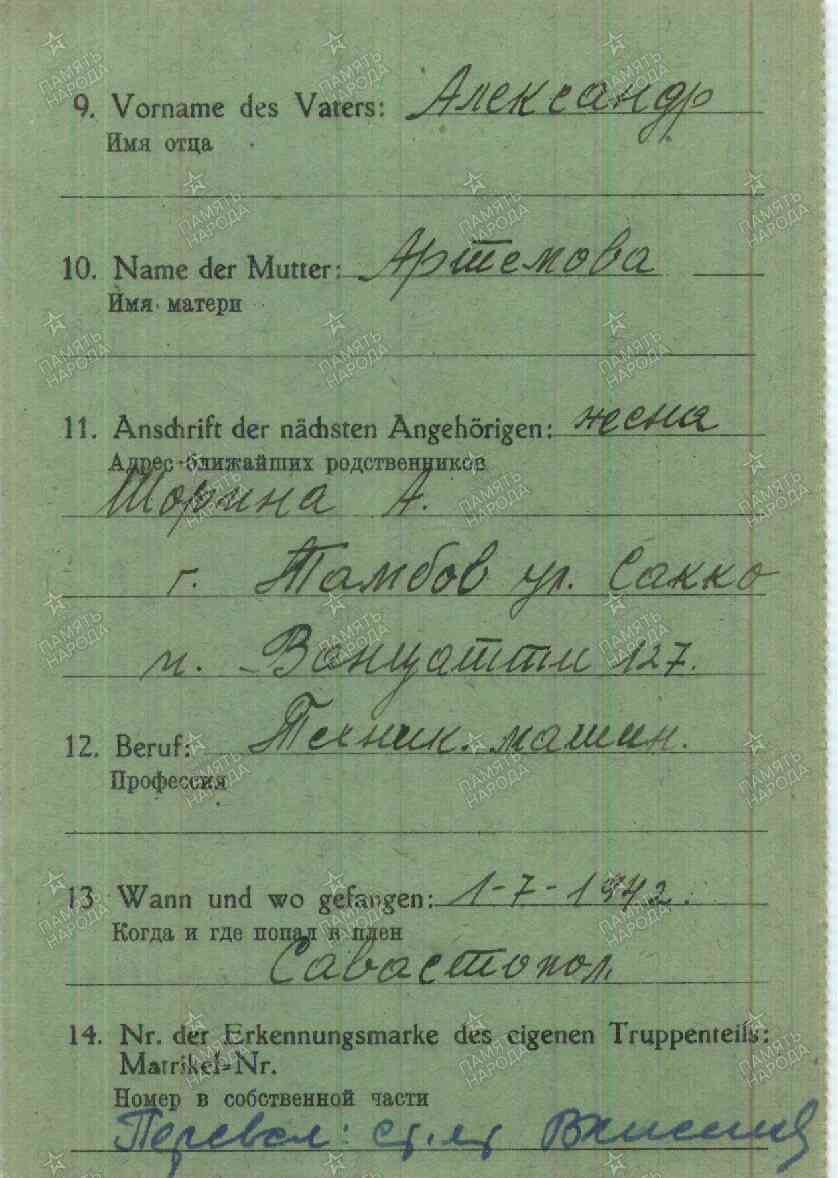 9. Vorname des Vaters: Александр
Имя отца
10. Name der Mutter: Артемова
Имя матери
11. Anschrift der nächsten Angehörigen: жена
Адрес ближайших родственников
Шорина А.
г. Тамбов ул. Сакко
и. Ванцатти 127.
12. Beruf: Техник. машин.
Профессия
13 Wann und wo gefangen: 1-7-1942.
Когда и где попал в плен
Савастопол
14. Nr. der Erkennungsmarke des eigenen Truppenteils:
Matrikel-Nr.
Номер в собственной части
Перевел: ст. л-т
ПАМЯТЬ НАРОДА